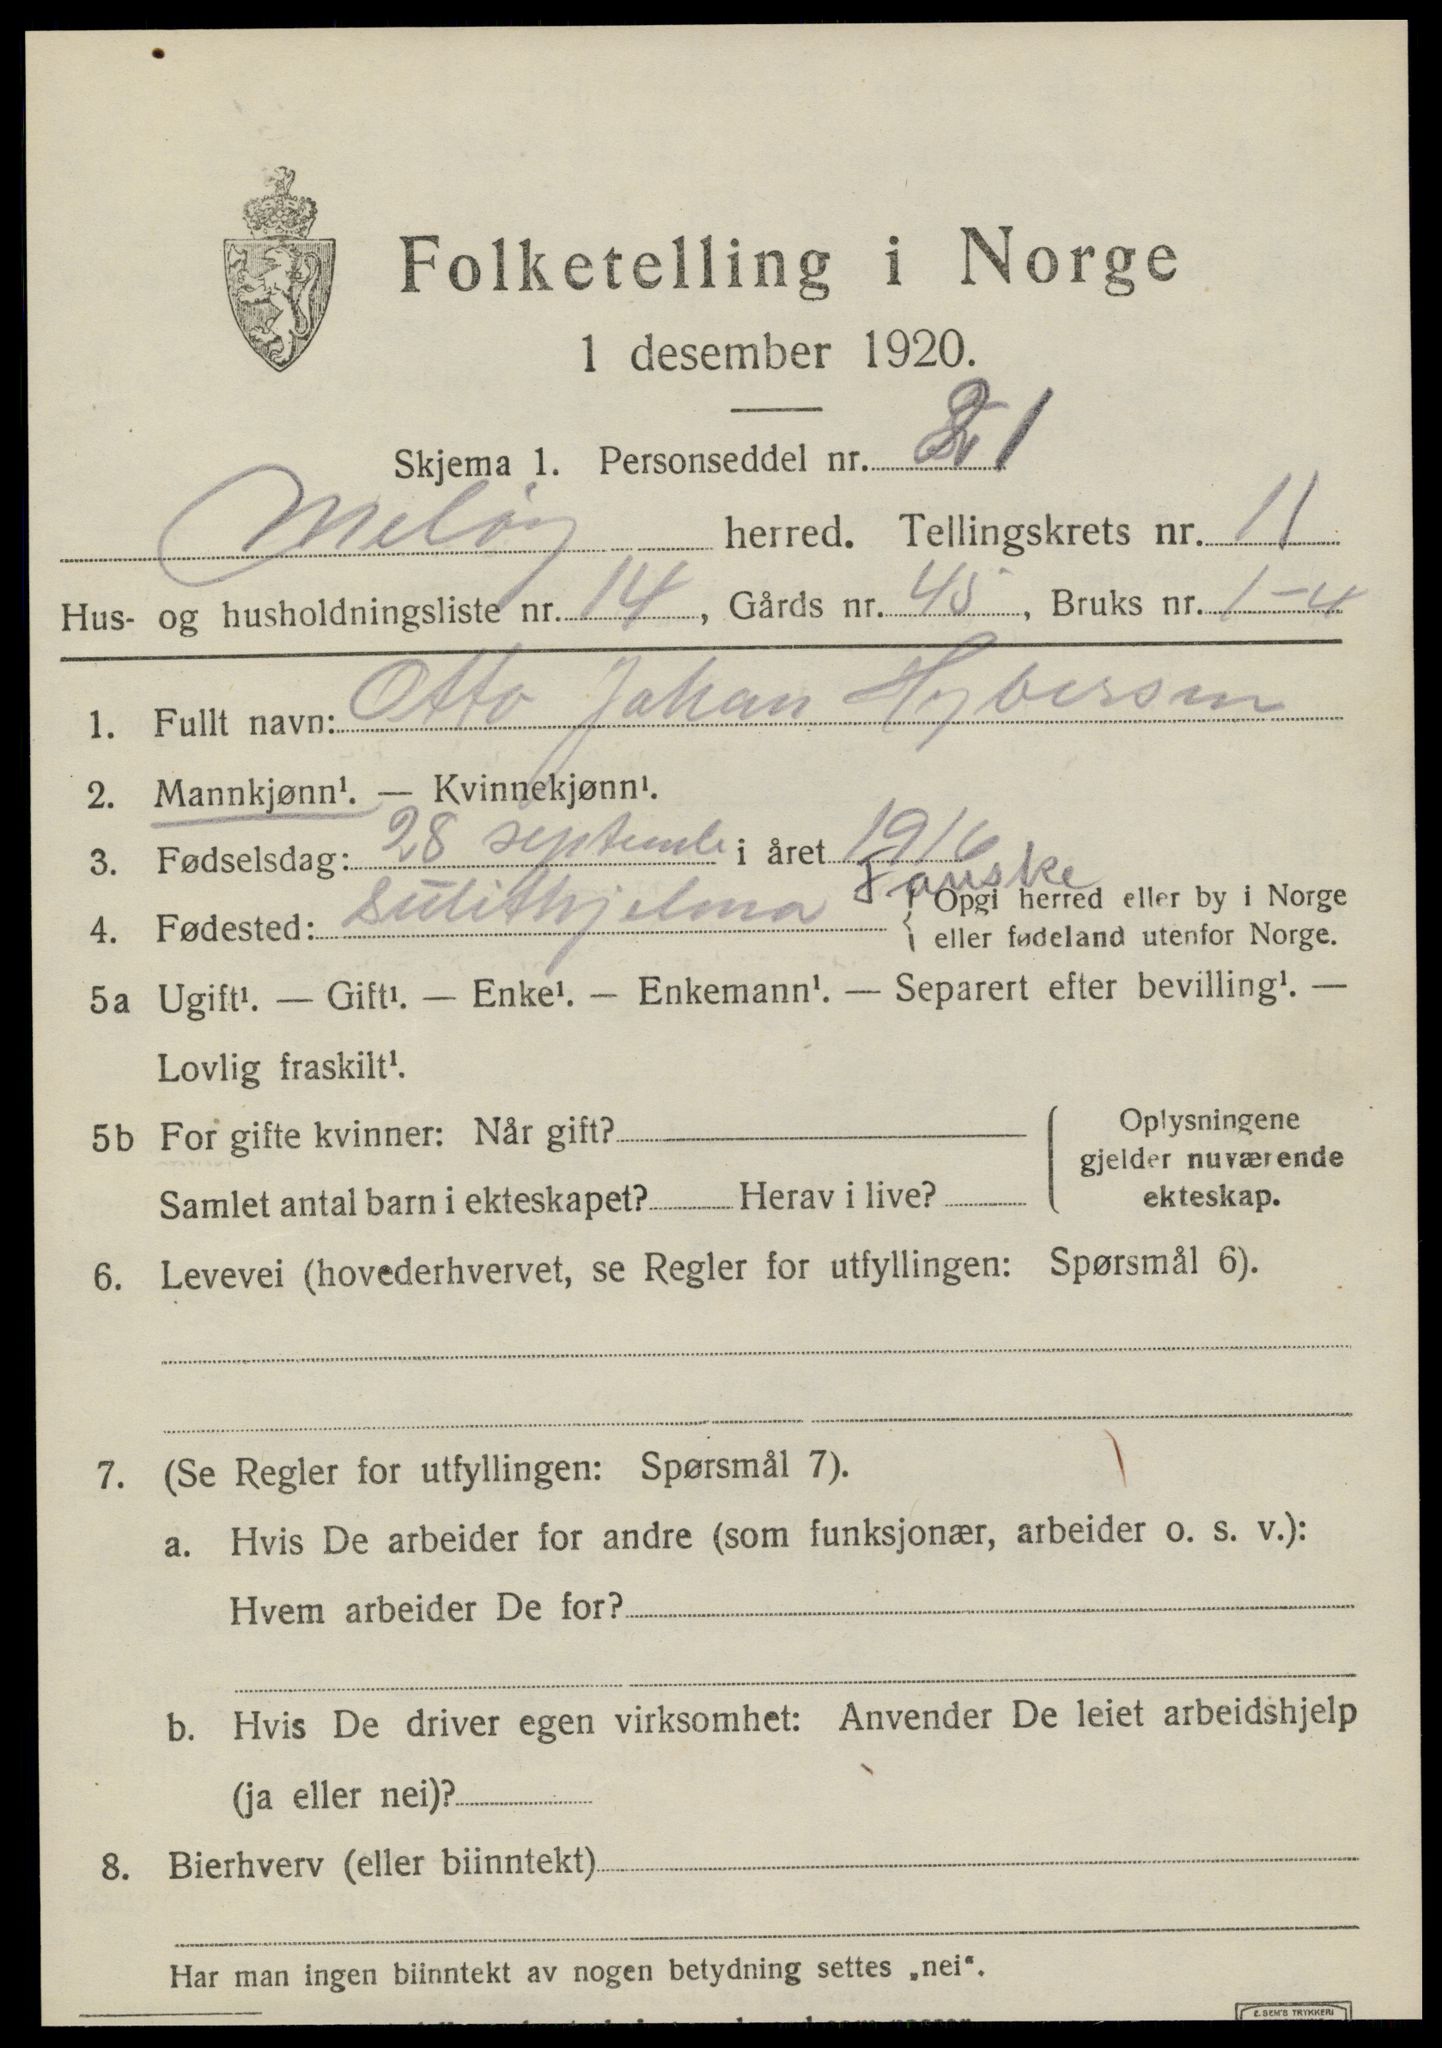 Folketelling i Norge
1 desember 1920.
Skjema 1. Personseddel nr. 1
Meløy herred. Tellingskrets nr. 11
Hus- og husholdningsliste nr. 14, Gårds nr. 45, Bruks nr. 1-4
1. Fullt navn: Otto Johan Hybersen
2. Mannkjønn¹. — Kvinnekjønn¹.
3. Fødselsdag: 28 septembe i året 1916
Fauske
4. Fødested: Sulithjelma { Opgi herred eller by i Norge
eller fødeland utenfor Norge.
5a Ugift¹. — Gift¹. — Enke¹. — Enkemann¹. — Separert efter bevilling¹. —
Lovlig fraskilt¹.
5b For gifte kvinner: Når gift?
Samlet antal barn i ekteskapet? Herav i live?
Oplysningene
gjelder nuværende
ekteskap.
6. Levevei (hovederhvervet, se Regler for utfyllingen: Spørsmål 6).
7. (Se Regler for utfyllingen: Spørsmål 7).
a. Hvis De arbeider for andre (som funksjonær, arbeider o. s. v.):
Hvem arbeider De for?
b. Hvis De driver egen virksomhet: Anvender De leiet arbeidshjelp
(ja eller nei)?
8. Bierhverv (eller biinntekt)
Har man ingen biinntekt av nogen betydning settes „nei“.
E. SEM'S TRYKKERI